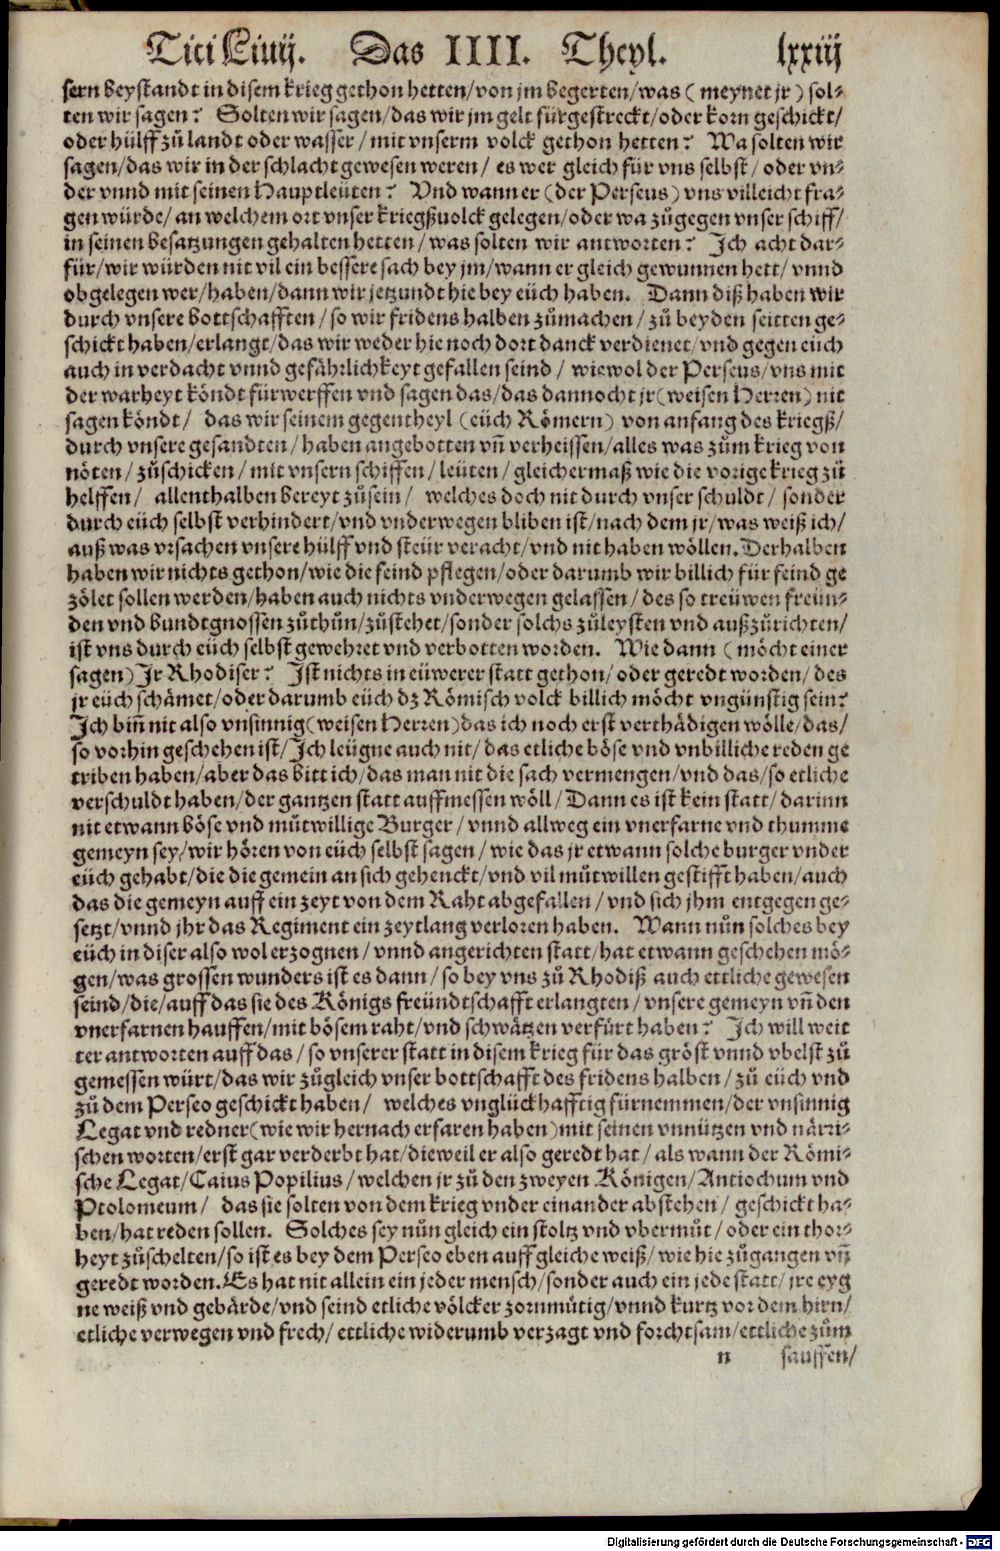 Titi Liuij. Das IIII. Theyl. lxxiij
sern beystandt in disem krieg gethon hetten/von jm begerten/was (meynet jr) sol-
ten wir sagen? Solten wir sagen/das wir jm gelt fürgestreckt/oder korn geschickt/
oder hülff zů landt oder wasser/mit vnserm volck gethon hetten? Wa solten wir
sagen/das wir in der schlacht gewesen weren/es wer gleich für vns selbst/oder vn-
der vnnd mit seinen Hauptleüten? Vnd wann er (der Perseus) vns villeicht fra-
gen würde/an welchem ort vnser kriegßuolck gelegen/oder wa zůgegen vnser schiff/
in seinen besatzungen gehalten hetten/was solten wir antworten? Ich acht dar-
für/wir würden nit vil ein bessere sach bey jm/wann er gleich gewunnen hett/vnnd
obgelegen wer/haben/dann wir jetzundt hie bey eüch haben. Dann diß haben wir
durch vnsere bottschafften/so wir fridens halben zůmachen/zů beyden seitten ge-
schickt haben/erlangt/das wir weder hie noch dort danck verdienet/vnd gegen eüch
auch in verdacht vnnd gefährlichkeyt gefallen seind/wiewol der Perseus/vns mit
der warheyt köndt fürwerffen vnd sagen das/das dannocht jr (weisen Herren) nit
sagen köndt/das wir seinem gegentheyl (eüch Römern) von anfang des kriegß/
durch vnsere gesandten/haben angebotten vñ verheissen/alles was zům krieg von
nöten/zůschicken/mit vnsern schiffen/leüten/gleichermaß wie die vorige krieg zů
helffen/allenthalben bereyt zůsein/welches doch nit durch vnser schuldt/sonder
durch eüch selbst verhindert/vnd vnderwegen bliben ist/nach dem jr/was weiß ich/
auß was vrsachen vnsere hülff vnd steür veracht/vnd nit haben wöllen. Derhalben
haben wir nichts gethon/wie die feind pflegen/oder darumb wir billich für feind ge
zölet sollen werden/haben auch nichts vnderwegen gelassen/des so treüwen freün-
den vnd bundtgnossen zůthůn/zůstehet/sonder solchs zůleysten vnd außzůrichten/
ist vns durch eüch selbst gewehret vnd verbotten worden. Wie dann (möcht einer
sagen) Jr Rhodiser? Ist nichts in eüwerer statt gethon/oder geredt worden/des
jr eüch schämet/oder darumb eüch dz Römisch volck billich möcht vngünstig sein?
Ich biñ nit also vnsinnig (weisen Herren) das ich noch erst verthädigen wölle/das/
so vorhin geschehen ist/Ich leügne auch nit/das etliche böse vnd vnbilliche reden ge
triben haben/aber das bitt ich/das man nit die sach vermengen/vnd das/so etliche
verschuldt haben/der gantzen statt auffmessen wöll/Dann es ist kein statt/darinn
nit etwann böse vnd můtwillige Burger/vnnd allweg ein vnerfarne vnd thumme
gemeyn sey/wir hören von eüch selbst sagen/wie das jr etwann solche burger vnder
eüch gehabt/die die gemein an sich gehenckt/vnd vil můtwillen gestifft haben/auch
das die gemeyn auff ein zeyt von dem Raht abgefallen/vnd sich jhm entgegen ge-
setzt/vnnd jhr das Regiment ein zeytlang verloren haben. Wann nůn solches bey
eüch in diser also wol erzognen/vnnd angerichten statt/hat etwann geschehen mö-
gen/was grossen wunders ist es dann/so bey vns zů Rhodiß auch ettliche gewesen
seind/die/auff das sie des Königs freündtschafft erlangten/vnsere gemeyn vñ den
vnerfarnen hauffen/mit bösem raht/vnd schwätzen verfürt haben? Ich will weit
ter antworten auff das/so vnserer statt in disem krieg für das gröst vnnd vbelst zů
gemessen würt/das wir zůgleich vnser bottschafft des fridens halben/zů eüch vnd
zů dem Perseo geschickt haben/welches vnglückhafftig fürnemmen/der vnsinnig
Legat vnd redner (wie wir hernach erfaren haben) mit seinen vnnützen vnd närri-
schen worten/erst gar verderbt hat/dieweil er also geredt hat/als wann der Römi-
sche Legat/Caius Popilius/welchen jr zů den zweyen Königen/Antiochum vnd
Ptolomeum/das sie solten von dem krieg vnder einander abstehen/geschickt ha-
ben/hat reden sollen. Solches sey nůn gleich ein stoltz vnd vbermůt/oder ein thor-
heyt zůschelten/so ist es bey dem Perseo eben auff gleiche weiß/wie hie zůgangen vñ
geredt worden. Es hat nit allein ein jeder mensch/sonder auch ein jede statt/jre eyg
ne weiß vnd gebärde/vnd seind etliche völcker zornmůtig/vnnd kurtz vor dem hirn/
etliche verwegen vnd frech/ettliche widerumb verzagt vnd forchtsam/ettliche zům
n sauffen/
Digitalisierung gefördert durch die Deutsche Forschungsgemeinschaft - DFG